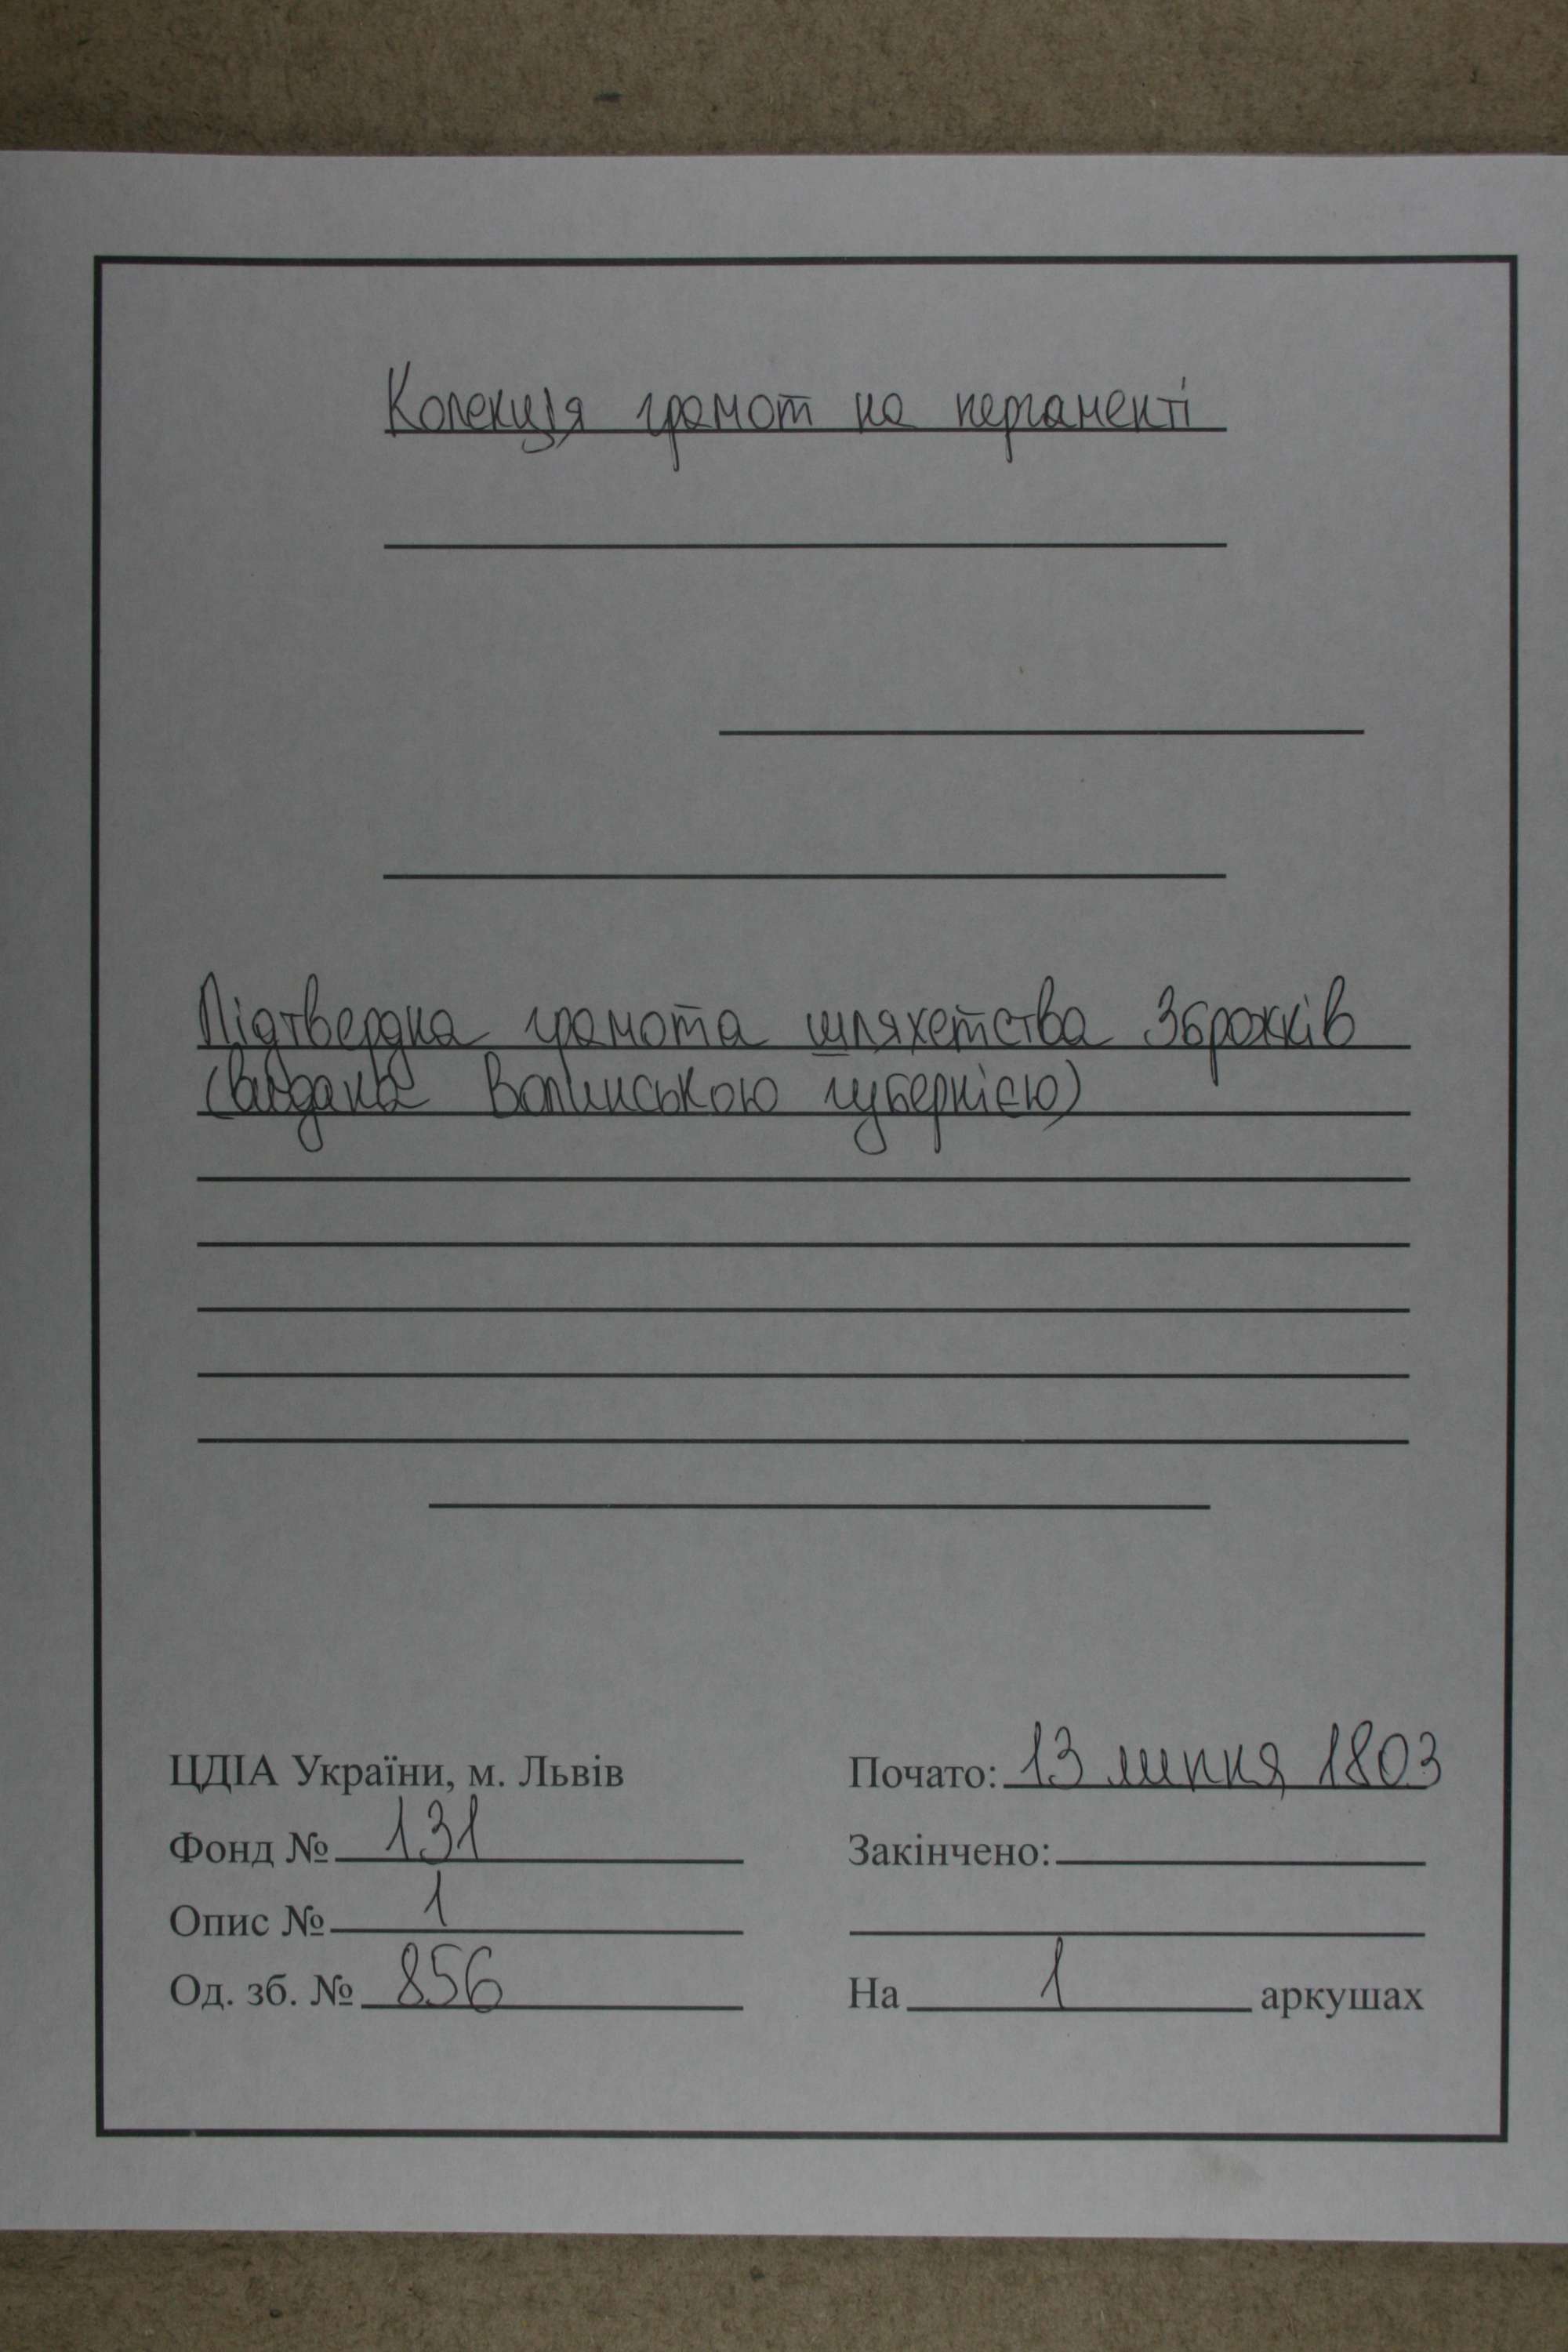 Колекція грамот на пергаменті
Підтвердна грамота шляхетства Зброжків
(видана Волинською губернією)
ЦДІА України, м. Львів
Фонд № 131
Опис № 1
Од. зб. № 856
Почато: 13 липня 1803
Закінчено:
На 1 аркушах